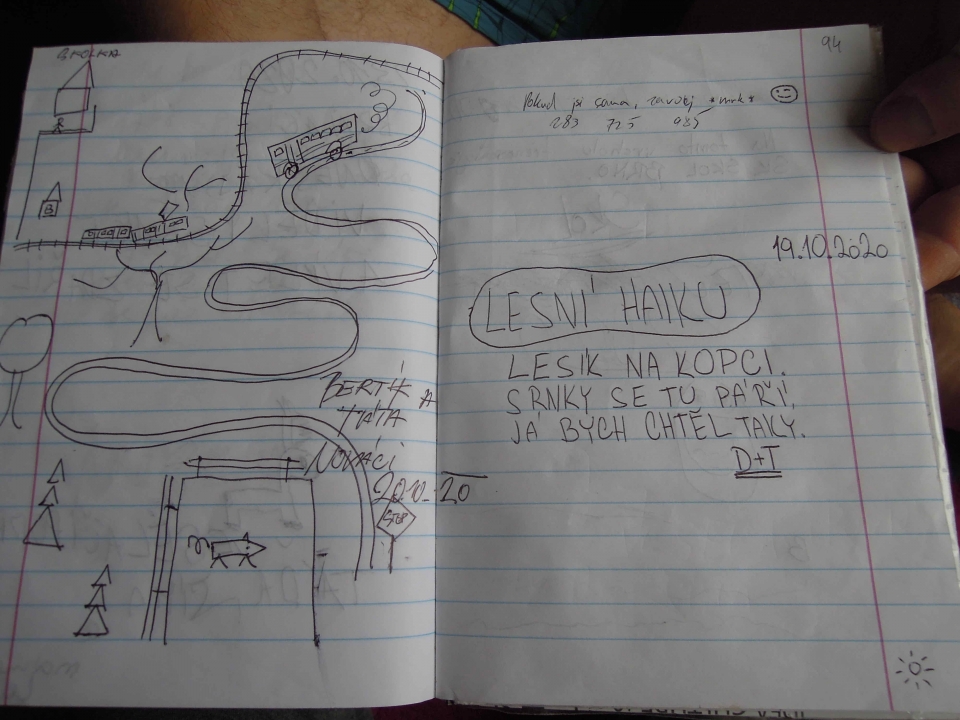 ŠKOLKA
B
BERTÍK A
TÁTA
NOVÁCI
20.10.20
STOP
94
Pokud jsi sama, zavolej *mrk*
283 725 985
19.10.2020
LESNÍ HAIKU
LESÍK NA KOPCI.
SRNKY SE TU PÁŘÍ,
JÁ BYCH CHTĚL TAKY.
D+T